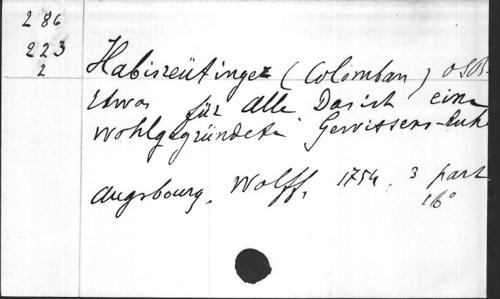 2 86
223
2
Habisreütinger (Colomban) OSB.
Etwas für alle Das ist eine
wohlgegründete Gewissens-Ruhe
Augsbourg, Wolff, 1754. 3 part
16°